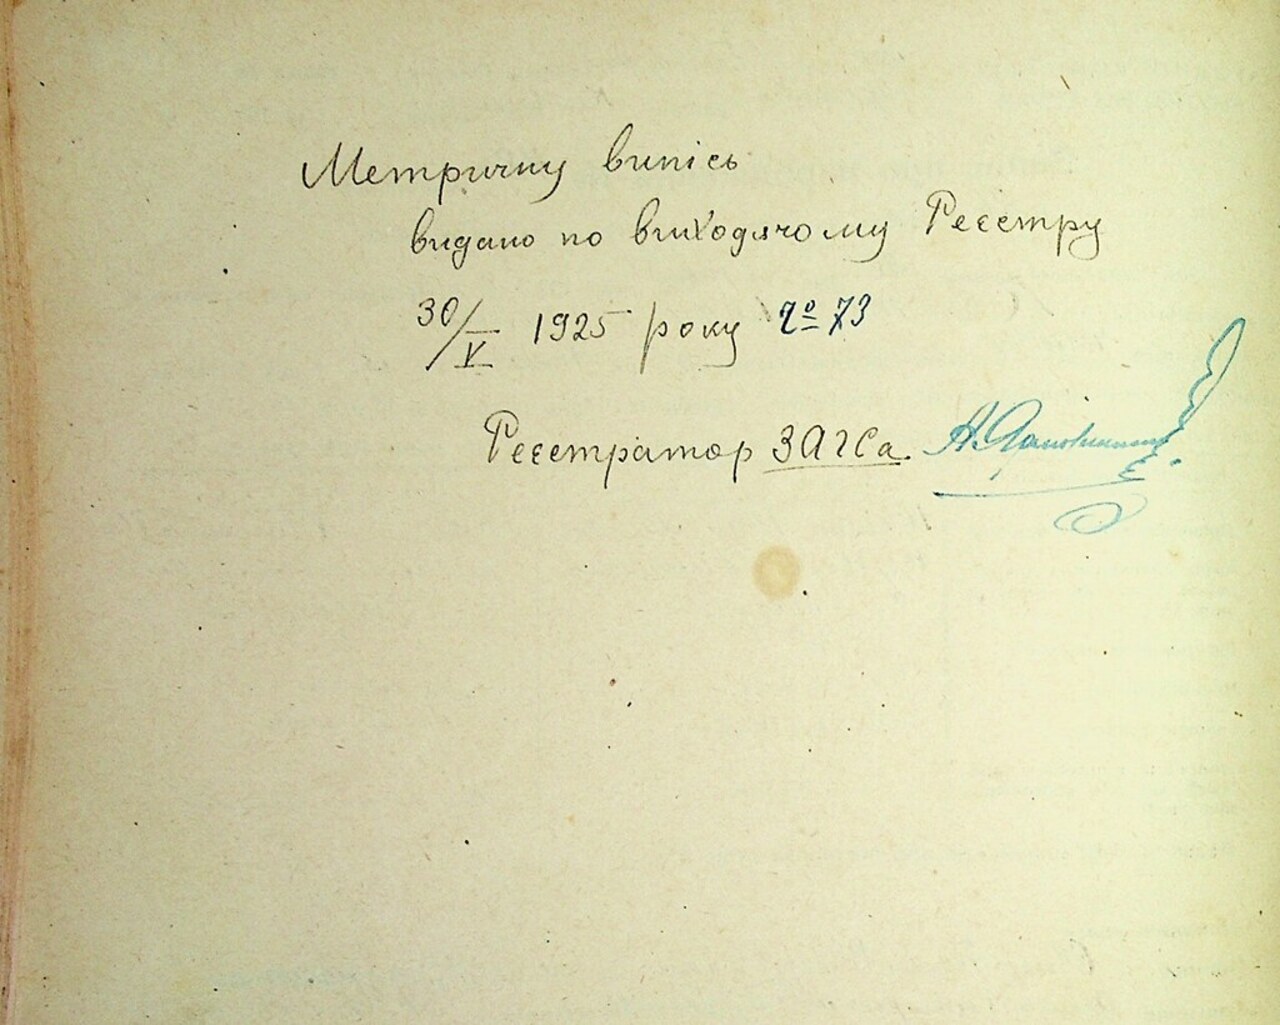 Метричну випісь
видано по виходячому Реєстру
30/V 1925 року № 73
Реєстратор ЗАГСа.